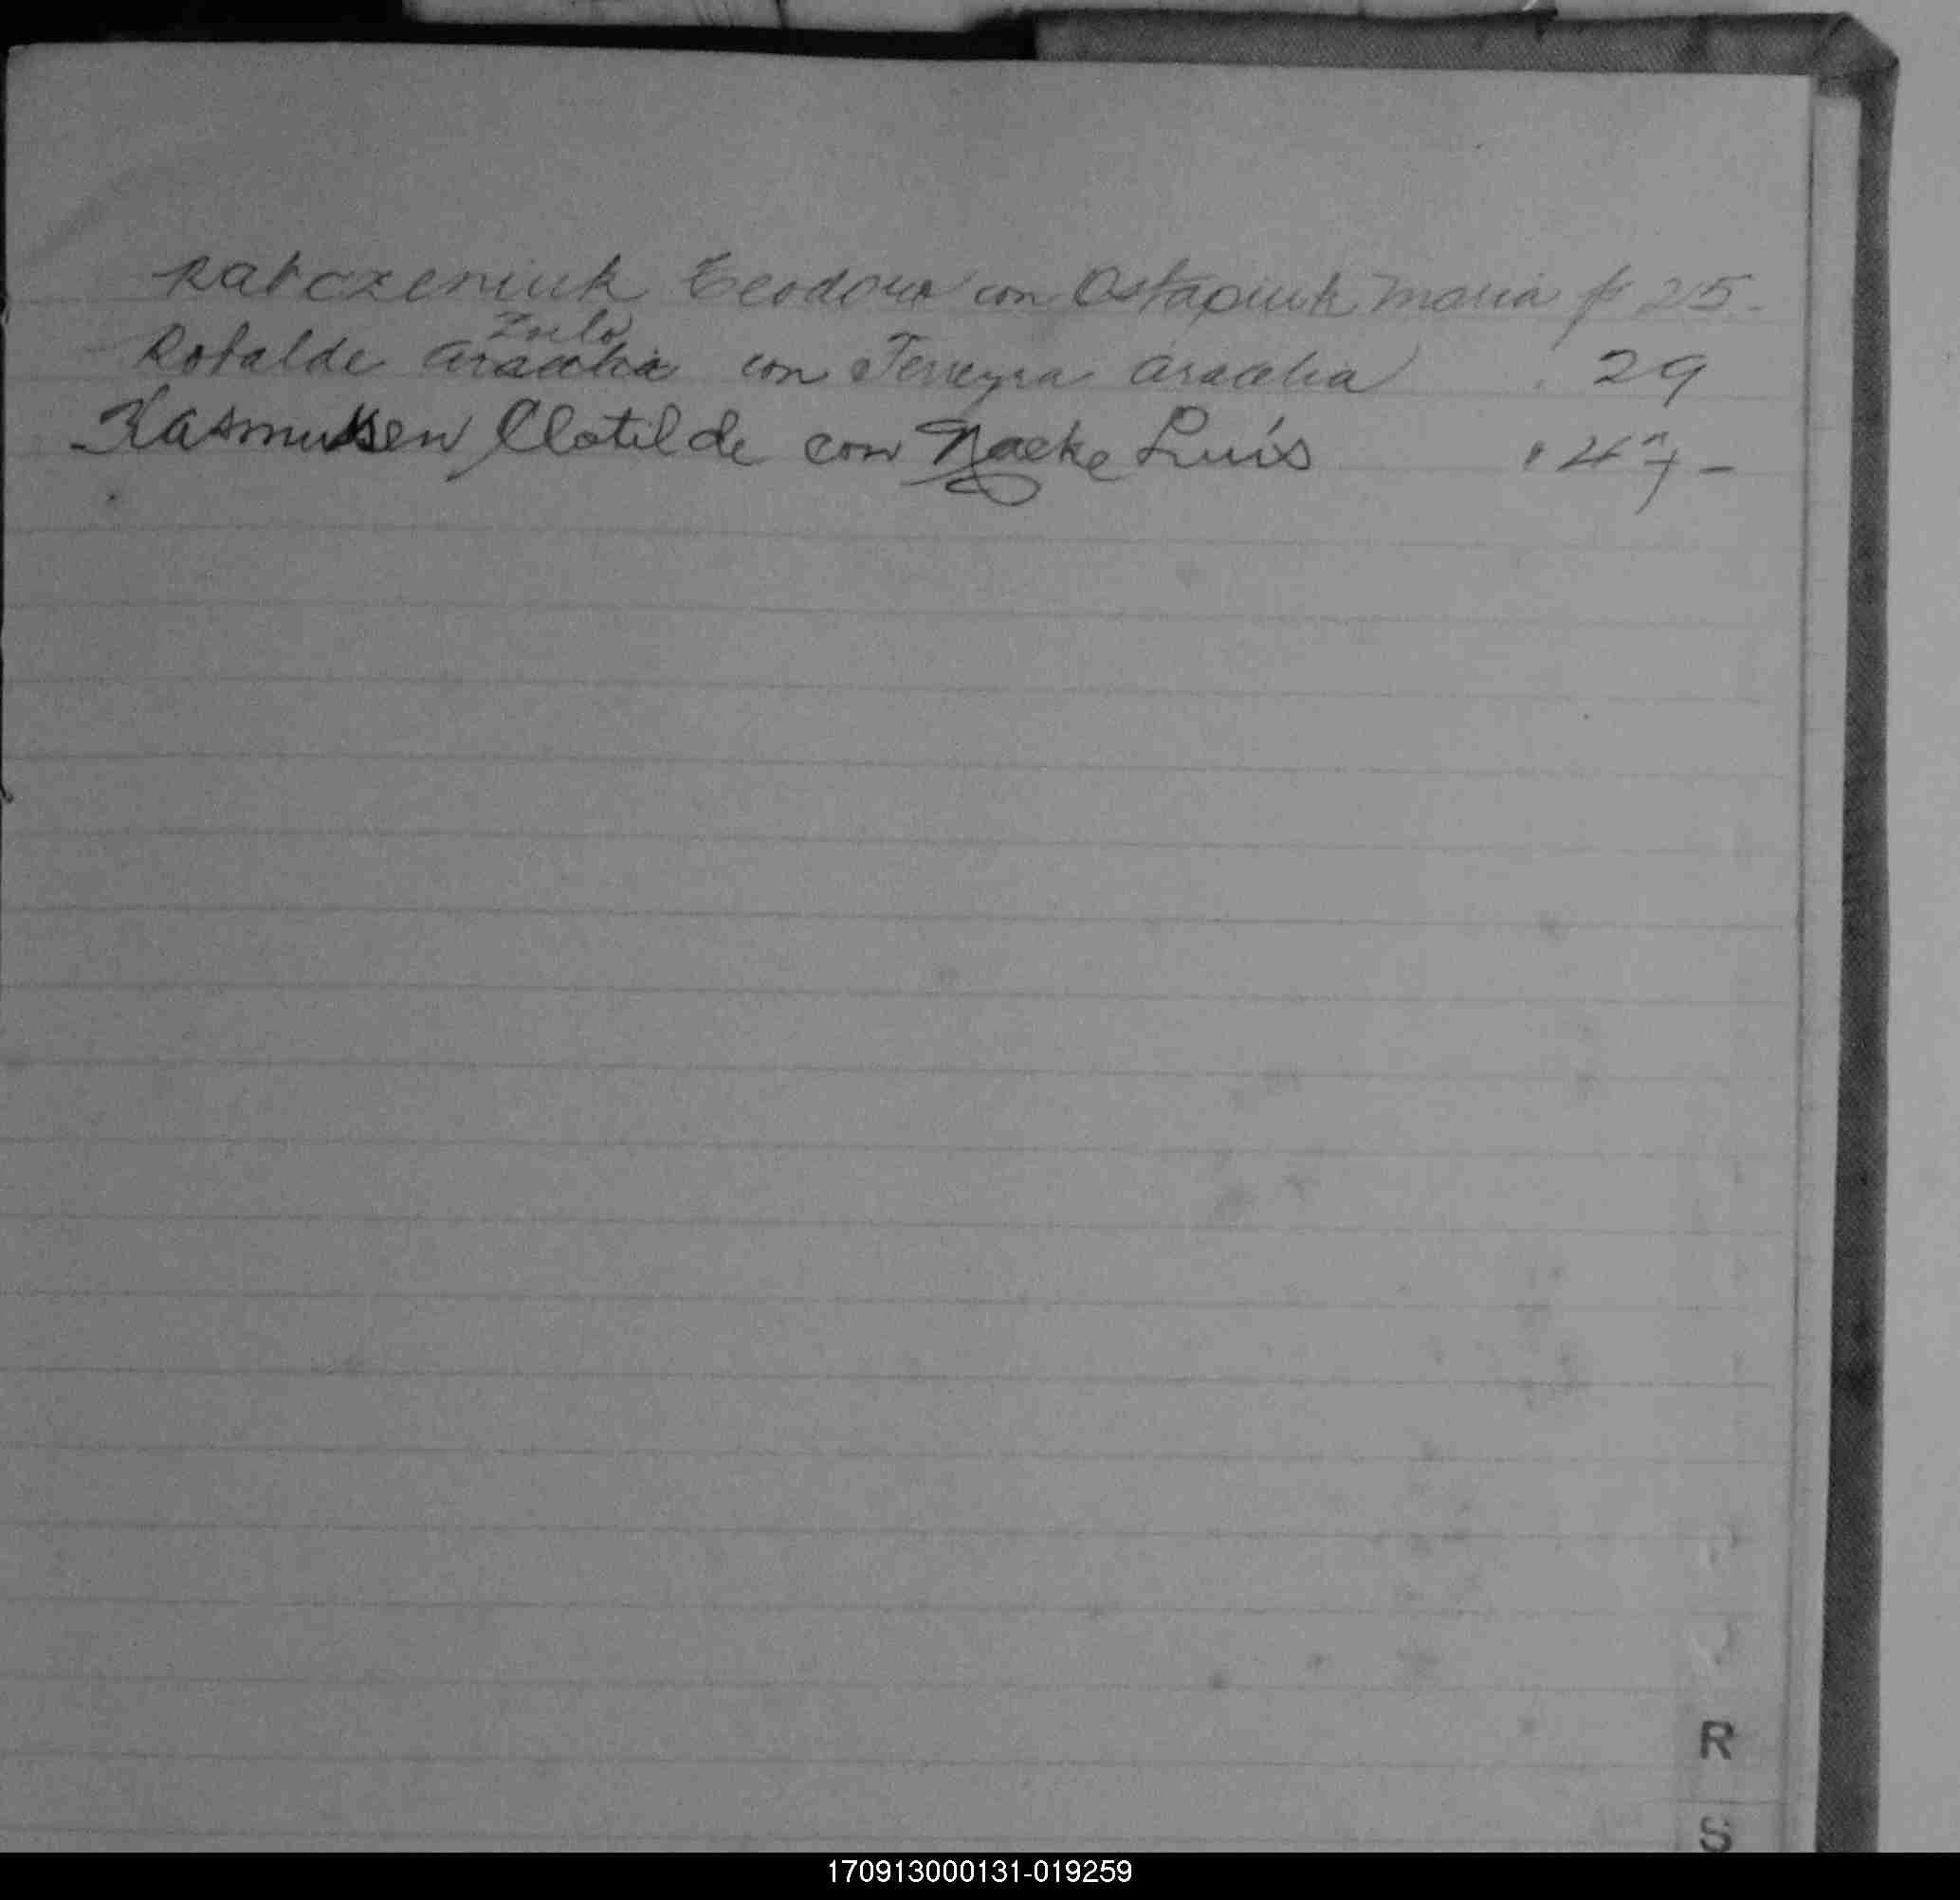 Ratczeniuk Teodoro con Ostapiuk Maria fs 25-
Zoilo
Rotalde Aracelia con Ferreyra Aracelia . 29
Rasmussen Clotilde con Nacke Luis " 47-
R
S
170913000131-019259